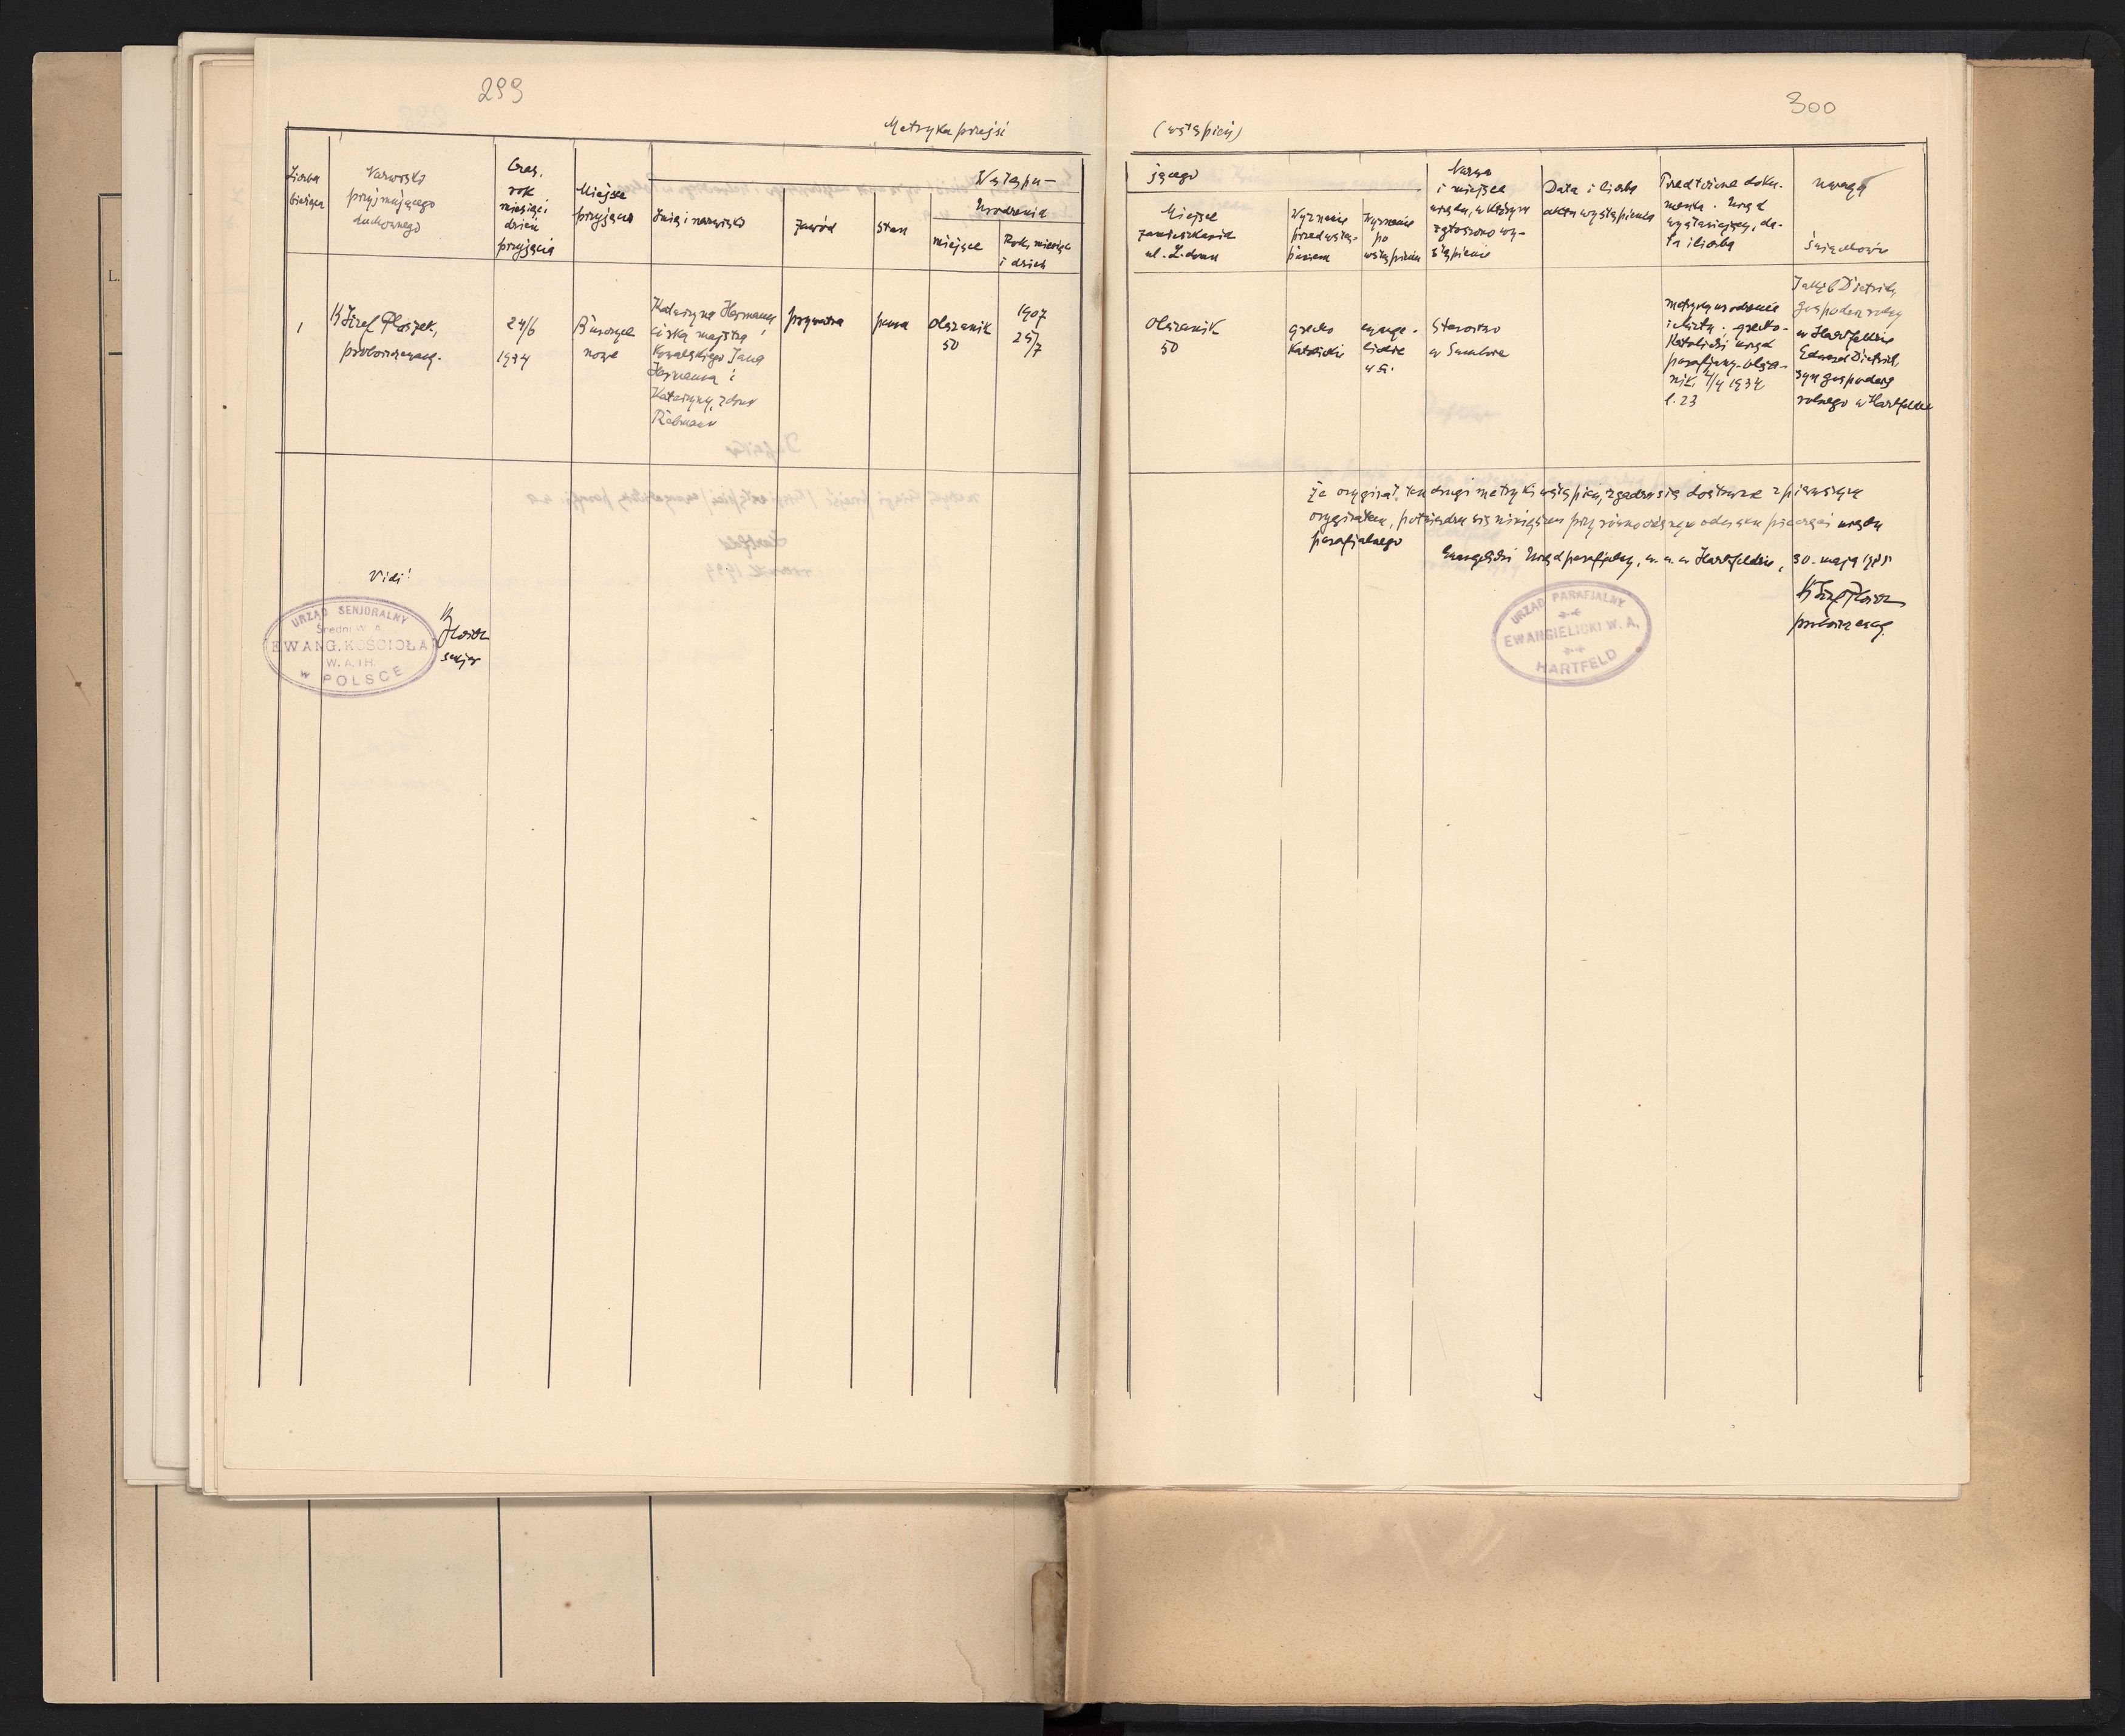 299
300
Metryka przejść
(wstąpień)
Liczba
bieżąca
Nazwisko
przyjmującego
duchownego
Czas,
rok
miesiąc i
dzień
przyjęcia
Miejsce
przyjęcia
Wstępu-
Imię i nazwisko
zawód
stan
Urodzenia
miejsce
Rok, miesiąc
i dzień
jącego
Miejsce
zamieszkania
ul. L. domu
Wyznanie
przed wstą-
pieniem
Wyznanie
po
wstąpieniu
Nazwa
i miejsce
urzędu, w którym
zgłoszono wy-
stąpienie
Data i liczba
aktu wystąpienia
Przedłożone doku-
menta. Urząd
wystawiający, da-
ta i liczba
uwagi
świadkowie
1
Ks Józef Ploszek,
proboszcz ewang.
24/6
1934
Burczyce
nowe
Katarzyna Hermann,
córka majstra
kowalskiego Jana
Hermanna i
Katarzyny, z domu
Rebmann
prywatna
panna
Olszanik
50
1907
25/
7
Olszanik
50
grecko
katolickie
ewange-
lickie
w. a.
Starostwo
w Samborze
metryka urodzenia
i chrztu: grecko-
katolicki urząd
parafjalny-Olsza-
nik, 4/4 1934
l. 23
Jakób Dietrich,
gospodarz rolny
w Hartfeldzie
Edward Dietrich,
syn gospodarza
rolnego w Hartfeldzie
że oryginał, ten drugi metryki wstąpień, zgadza się dosłownie z pierwszym
oryginałem, potwierdza się niniejszem przy równoczesnym odcisku pieczęci urzędu
parafjalnego
Ewangelicki Urząd parafjalny, w. a. w Hartfeldzie, 30. maja 1935
Ks Józef Ploszek
proboszcz ewg.
Vidi!
senjor
URZĄD SENJORALNY
Średni W. A.
EWANG. KOŚCIOŁA
W. A. I H.
w POLSCE
URZĄD PARAFJALNY
EWANGIELICKI W. A.
HARTFELD
L.